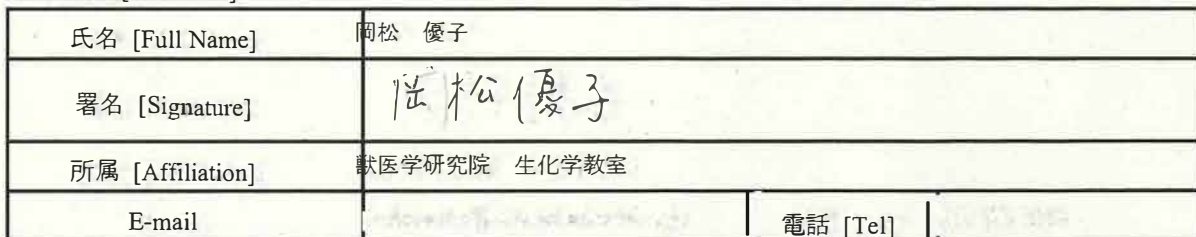 氏名 [Full Name] 岡松 優子
署名 [Signature] 岡松優子
所属 [Affiliation] 獣医学研究院 生化学教室
E-mail 電話 [Tel]